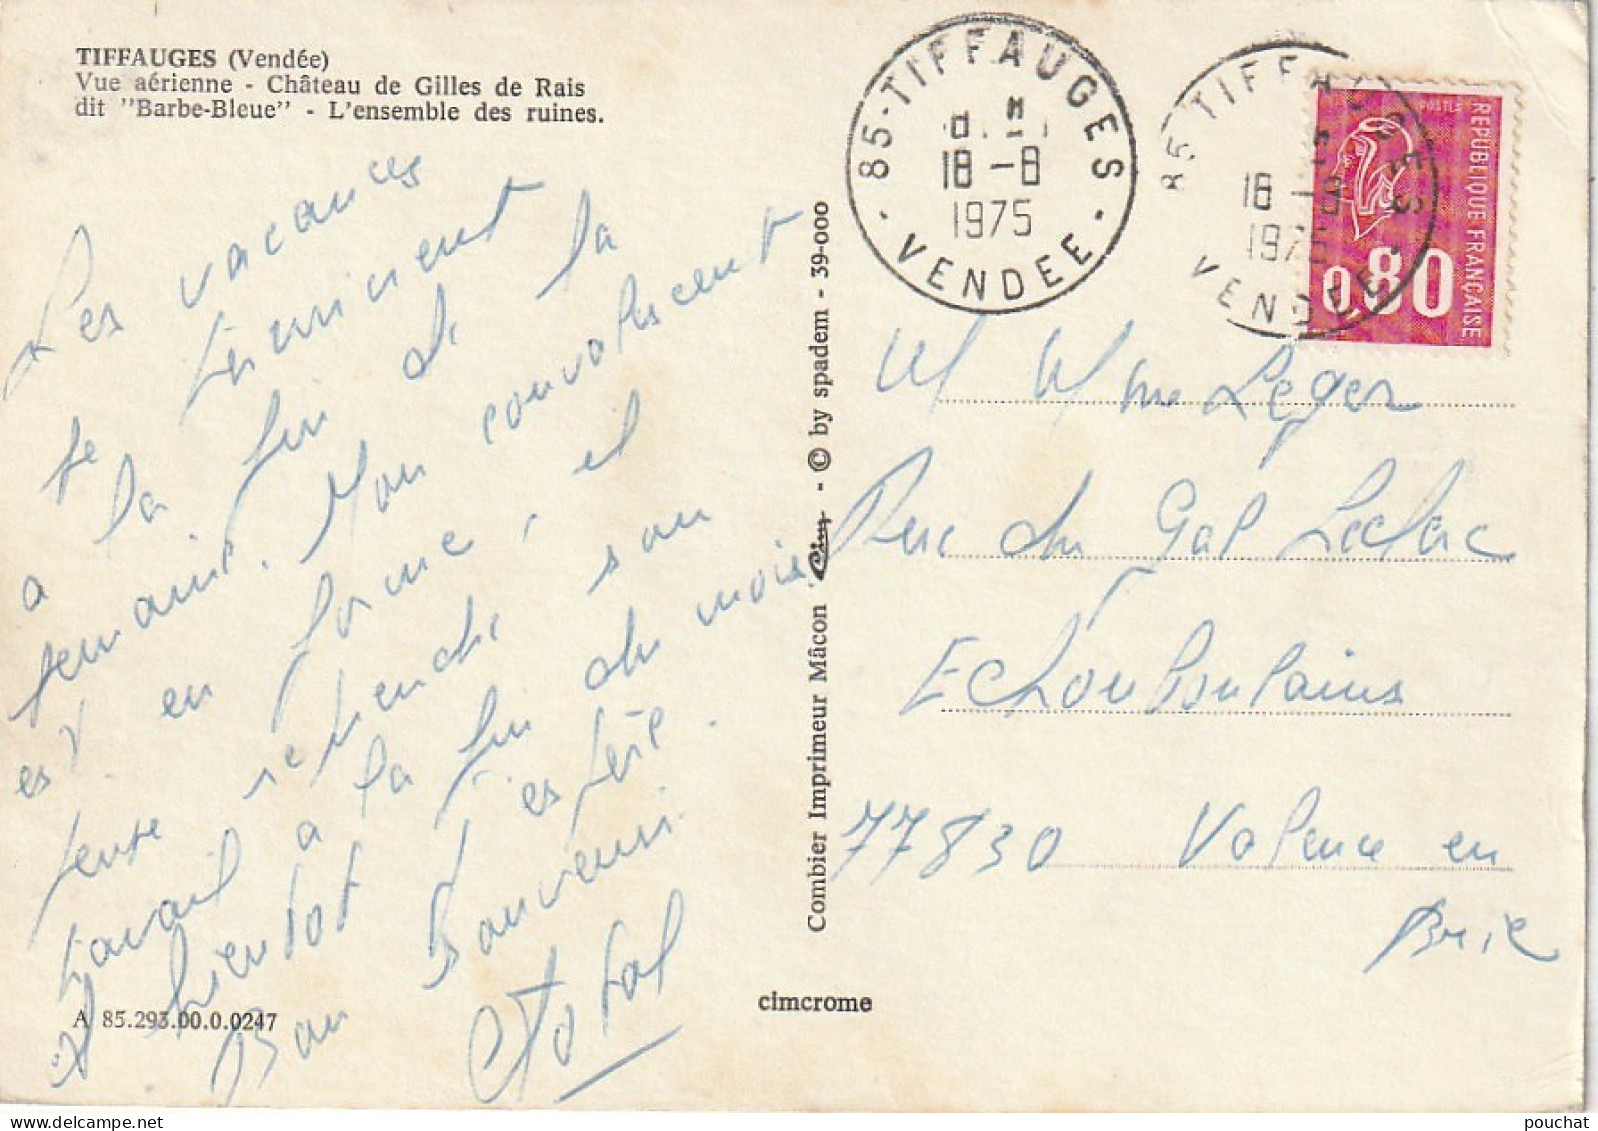 TIFFAUGES (Vendée)
Vue aérienne - Château de Gilles de Rais
dit "Barbe-Bleue" - L'ensemble des ruines.
Les vacances
se terminent
a la fin de la
semaine. Mon convalescent
est en forme, et
pense reprendre son
travail a la fin du mois.
A bientot j'espère.
Bon Souvenir
A 85.293.00.0.0247
Combier Imprimeur Mâcon Cim - © by spadem - 39-000
cimcrome
85-TIFFAUGES
18-8
1975
- VENDEE -
85 TIFFAUGES
18-8
1975
VENDEE -
POSTES
REPUBLIQUE FRANÇAISE
0,80
M Mme Leger
Rue du Gal Leclerc
Echouboulains
77830 Valence en
Brie
pouchat